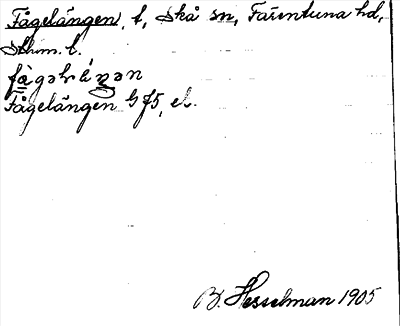 Fågelängen, t, Skå sn, Färentuna hd,
Sthlm. l.
Fågelängen G J5, el.
B. Hesselman 1905